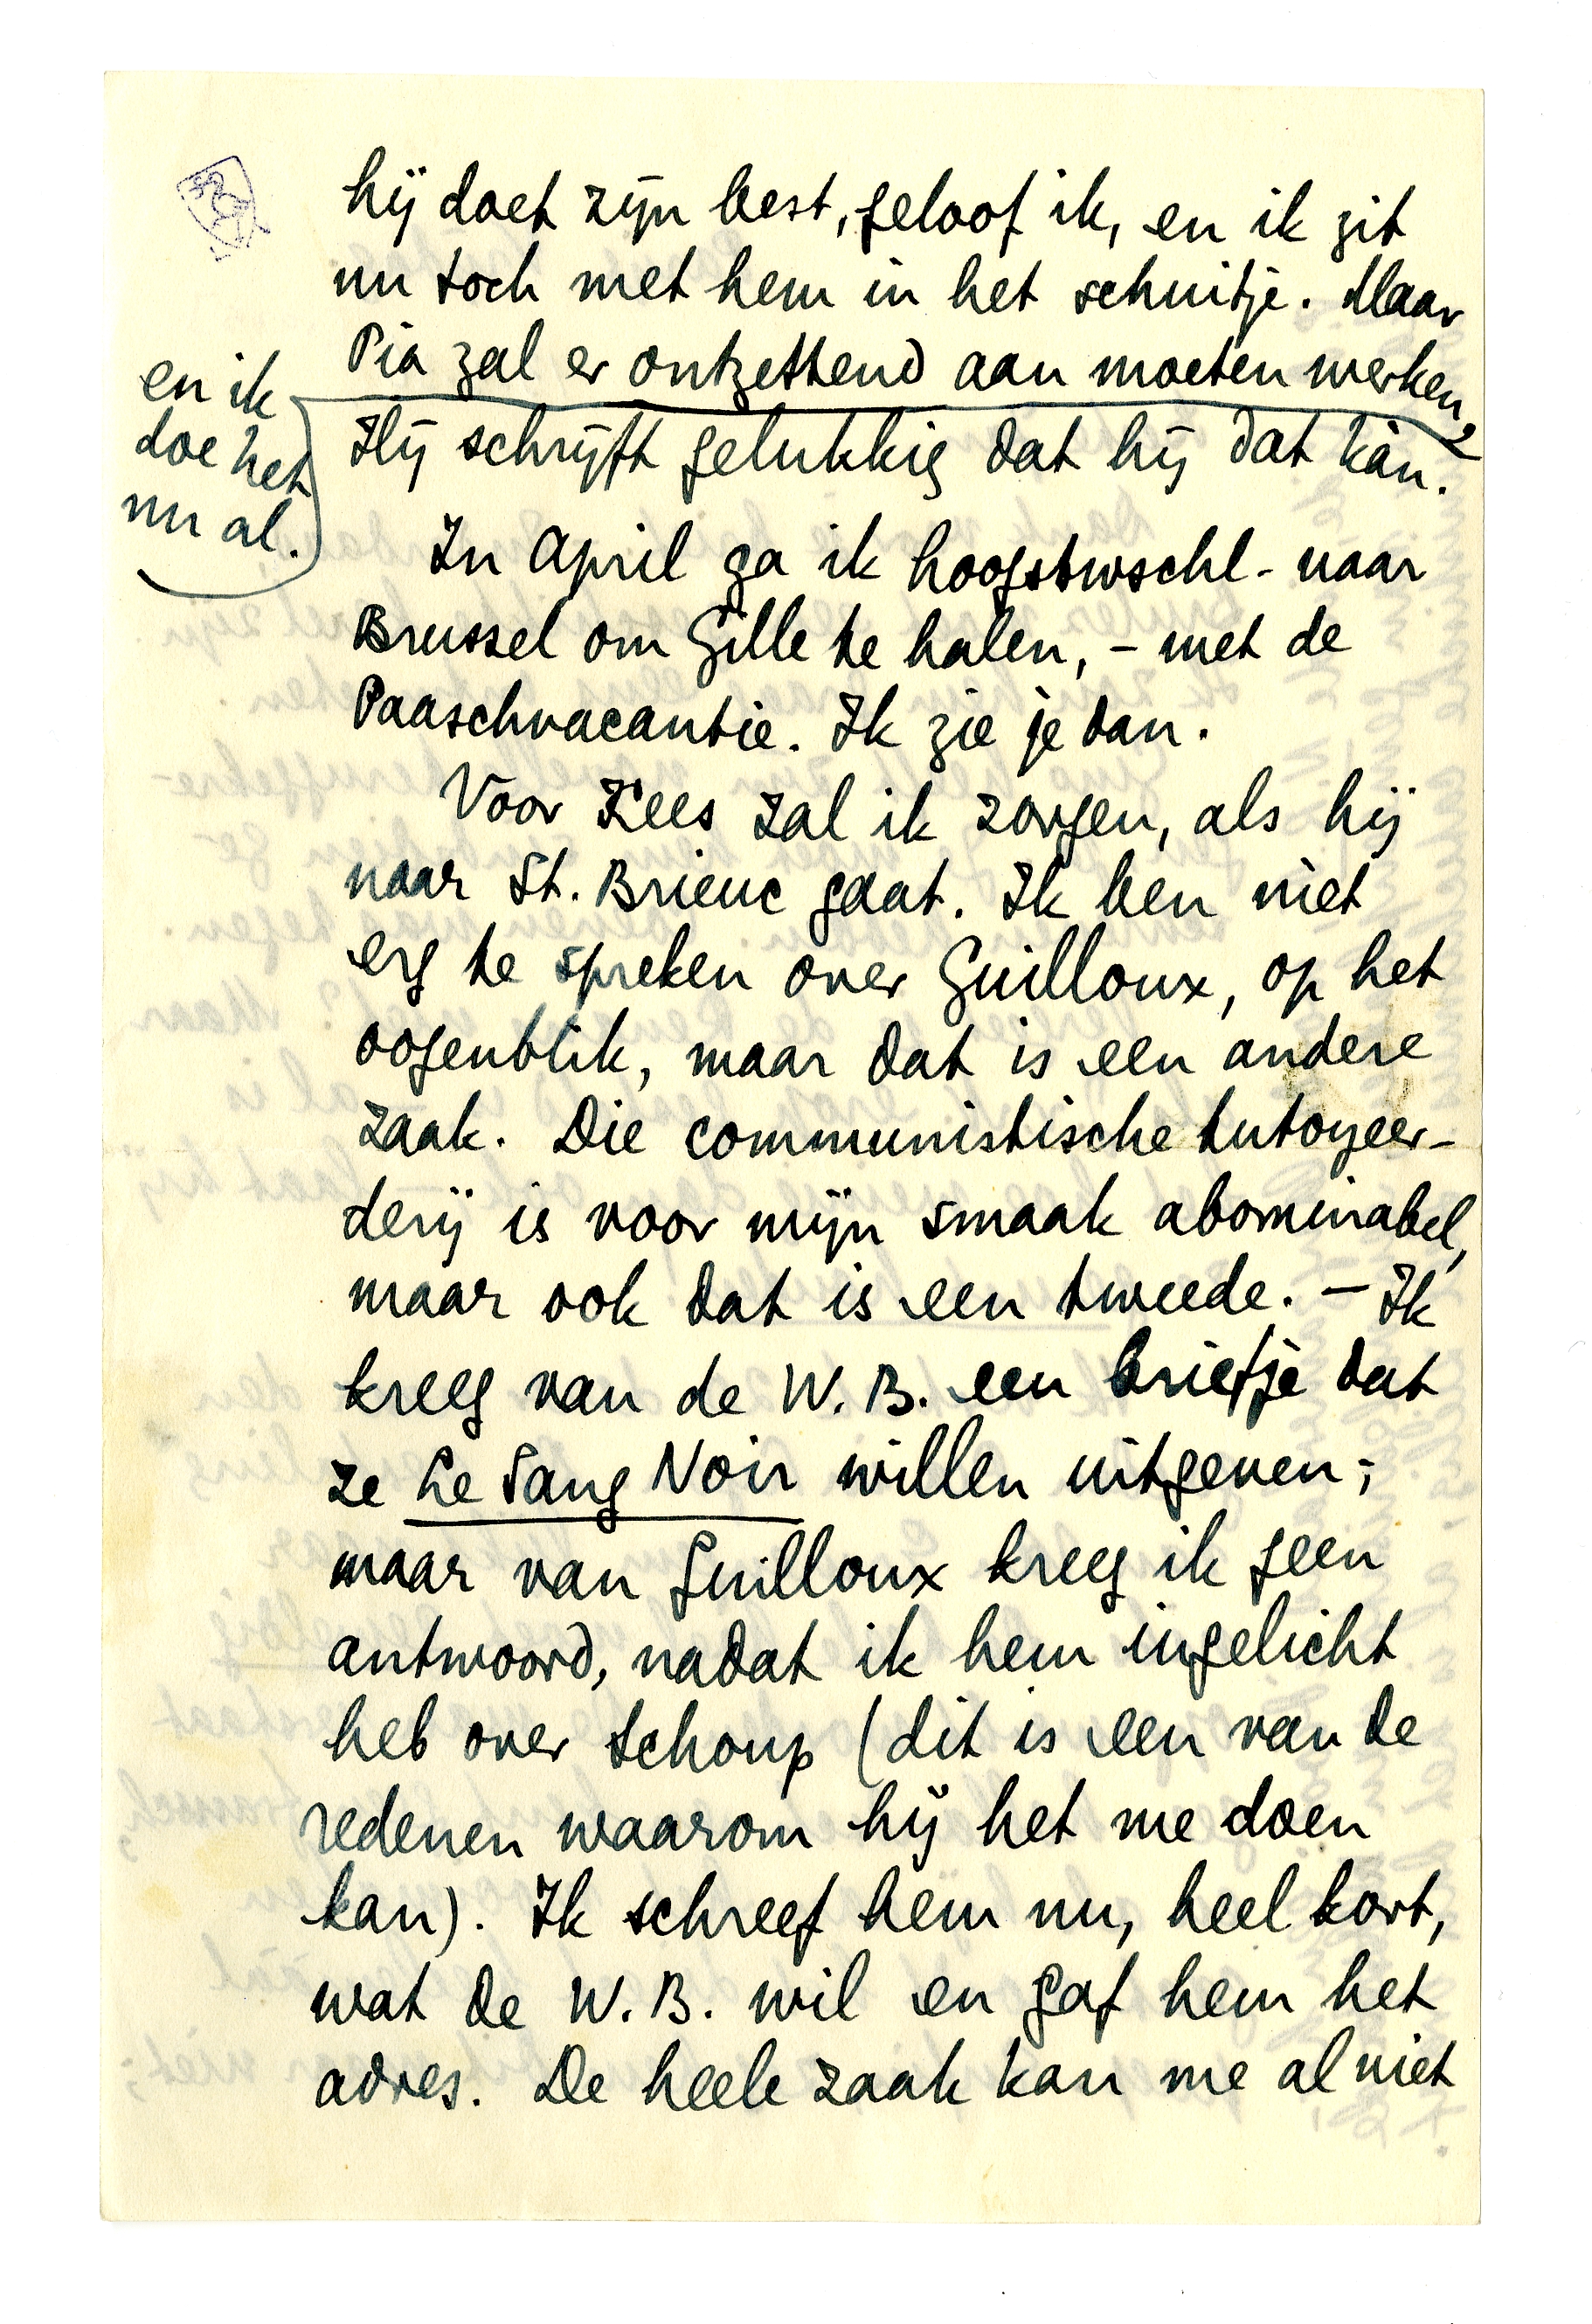 hij doet zijn best, geloof ik, en ik zit
nu toch met hem in het schuitje. Maar
Pia zal er ontzettend aan moeten werken,
en ik
doe het
nu al.
Hij schrijft gelukkig dat hij dat kàn.
In April ga ik hoogstwschl. naar
Brussel om Gille te halen, – met de
Paaschvacantie. Ik zie je dan.
Voor Kees zal ik zorgen, als hij
naar St. Brieuc gaat. Ik ben niet
erg te spreken over Guilloux, op het
oogenblik, maar dat is een andere
zaak. Die communistische tutoyeer-
derij is voor mijn smaak abominabel,
maar ook dat is een tweede. – Ik
kreeg van de W.B. een briefje dat
ze Le Sang Noir willen uitgeven;
maar van Guilloux kreeg ik geen
antwoord, nadat ik hem ingelicht
heb over Schoup (dit is een van de
redenen waarom hij het me doen
kan). Ik schreef hem nu, heel kort,
wat de W.B. wil en gaf hem het
adres. De heele zaak kan me al niet